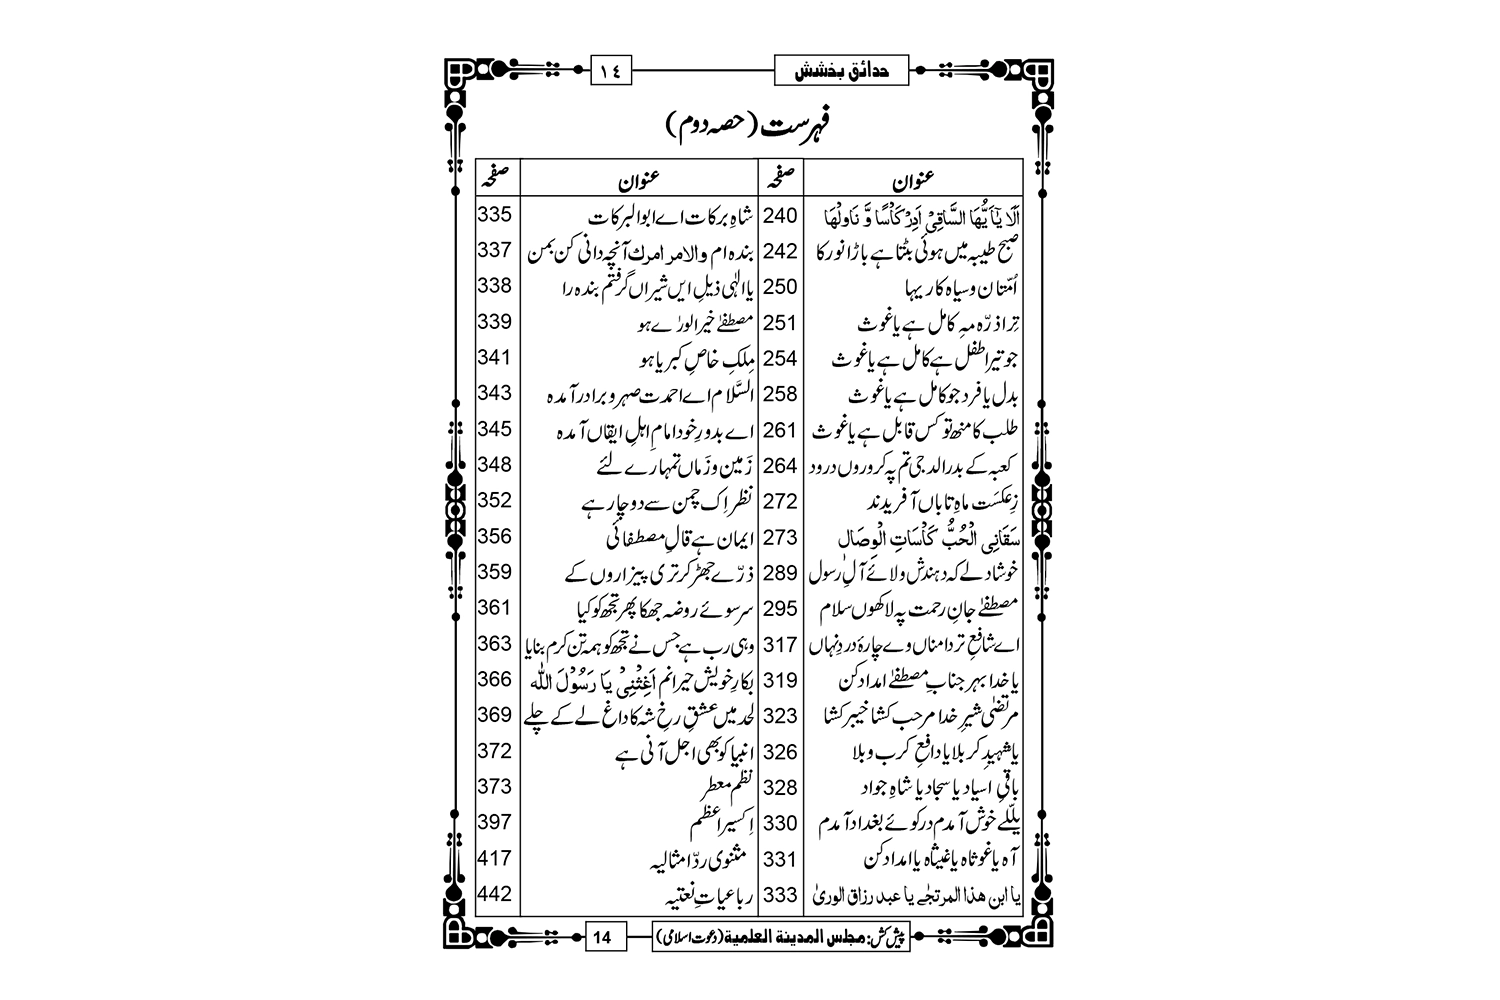 حدائق بخشش ١٤
فہرست (حصہ دوم)
عنوان صفحہ عنوان صفحہ
اَلَا یٰۤاَیُّھَا السَّاقِیْ اَدِرْ کَاْسًا وَّ نَاوِلْھَا 240 شاہِ برکات اے ابوالبرکات 335
صبح طیبہ میں ہوئی بٹتا ہے باڑا نور کا 242 بندہ ام والامر امرك آنچہ دانی کن بمن 337
اُمّتان و سیاہ کاریہا 250 یا الٰہی ذیلِ ایں شیراں گرفتم بندہ را 338
تِرا ذرّہ مہِ کامل ہے یا غوث 251 مصطفٰے خیرالورٰے ہو 339
جو تیرا طفل ہے کامل ہے یا غوث 254 مِلکِ خاصِ کبریا ہو 341
بدل یا فرد جو کامل ہے یا غوث 258 السَّلام اے احمدت صہر و برادر آمدہ 343
طلب کا منھ تو کس قابل ہے یا غوث 261 اے بدورِ خود امامِ اہلِ ایقاں آمدہ 345
کعبہ کے بدرالدجی تم پہ کروروں درود 264 زَمین و زَماں تمہارے لئے 348
زِعکسَت ماہِ تاباں آفریدند 272 نظر اِک چمن سے دوچار ہے 352
سَقَانِی الْحُبُّ کَاْسَاتِ الْوِصَالِ 273 ایمان ہے قالِ مصطفائی 356
خوشا دلے کہ دہندش ولائے آلِ رسول 289 ذرّے جھڑ کر تری پیزاروں کے 359
مصطفٰے جانِ رحمت پہ لاکھوں سلام 295 سر سوئے روضہ جھکا پھر تجھ کو کیا 361
اے شافعِ تر دامناں وے چارۂ دردِ نہاں 317 وہی رب ہے جس نے تجھ کو ہمہ تن کرم بنایا 363
یا خدا بہر جنابِ مصطفٰے امداد کن 319 بکارِ خویش حیرانم اَغِثْنِیْ یَا رَسُوْلَ اللّٰه 366
مرتضٰی شیرِ خدا مرحب کشا خیبر کشا 323 لحد میں عشقِ رخِ شہ کا داغ لے کے چلے 369
یا شہیدِ کربلا یا دافعِ کرب و بلا 326 انبیا کو بھی اجل آنی ہے 372
باقیِ اسیاد یا سجاد یا شاہِ جواد 328 نظم معطر 373
یللّے خوش آمدم در کوئے بغداد آمدم 330 اِکسیر اعظم 397
آہ یا غوثاہ یا غیثاہ یا امداد کن 331 مثنوی ردّ امثالیہ 417
یا ابن هذا المرتجٰے یا عبد رزاق الوریٰ 333 رباعیاتِ نعتیہ 442
پیش کش: مجلس المدينة العلمية (دعوت اسلامی) 14